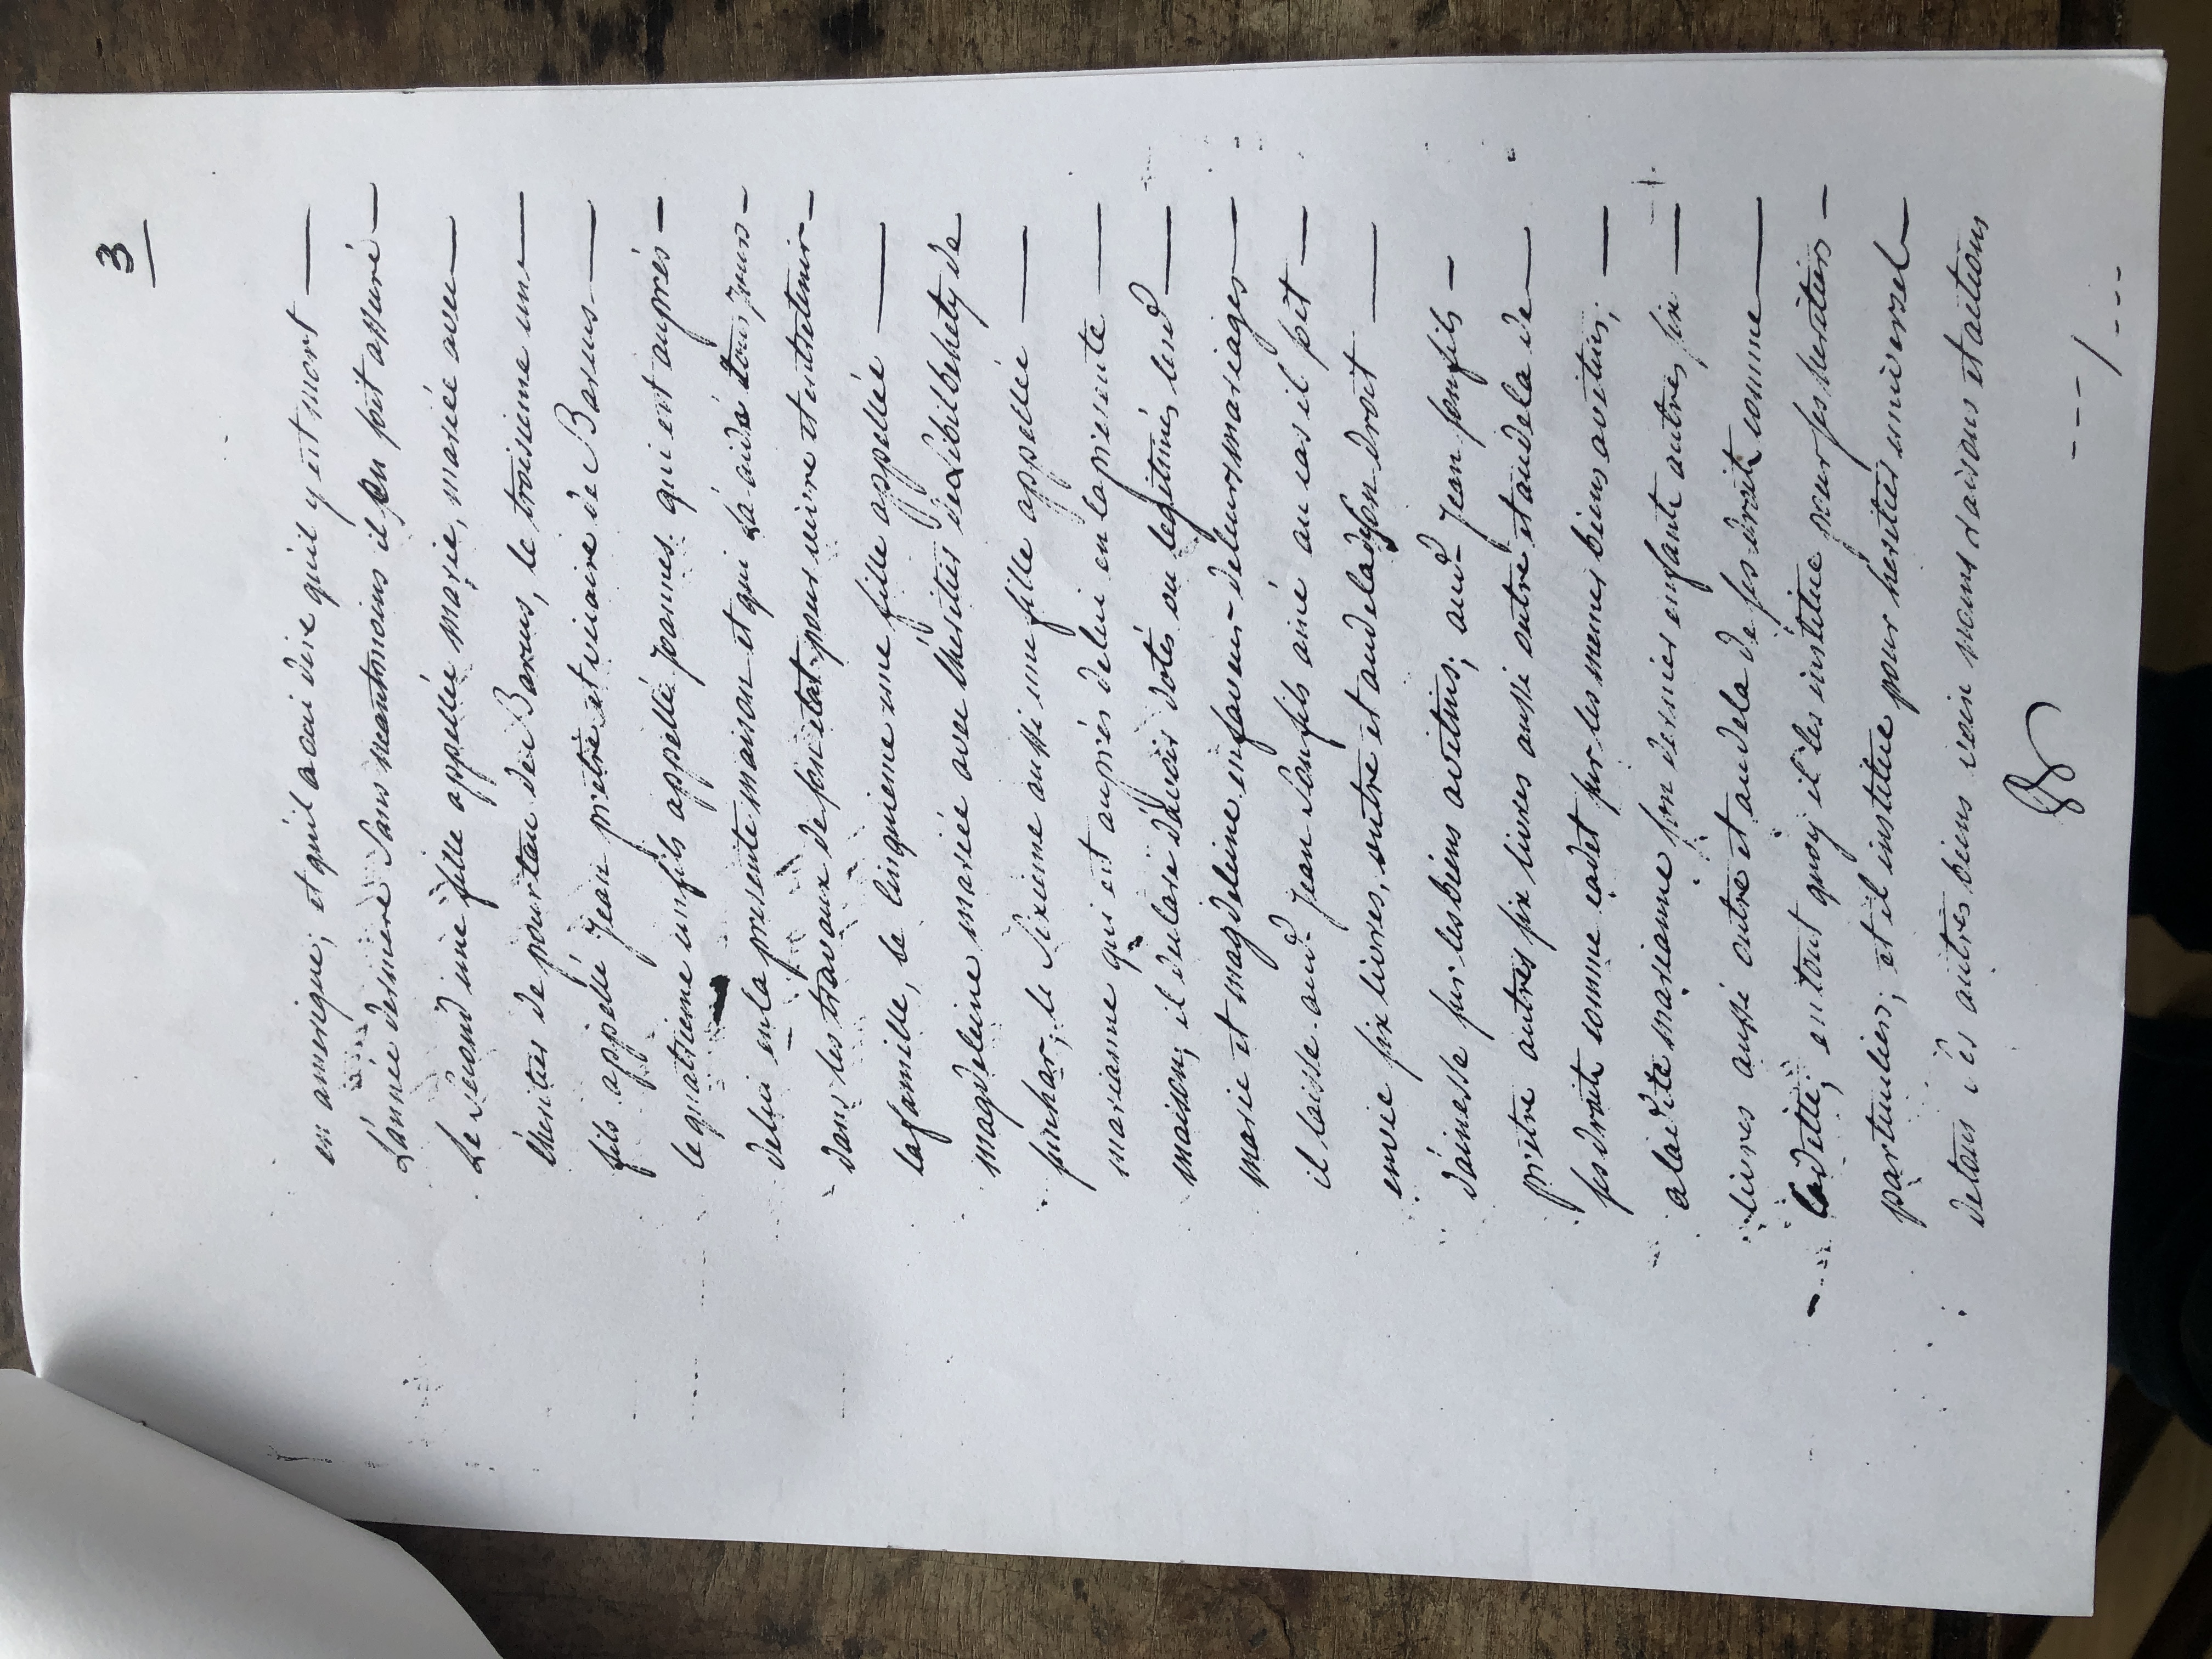 3
en amerique; et quil a oui dire quil y est mort
L'année derniere Sans neantmoins il en soit assuré
Le Second une fille appellée marie, mariée avec
lheritier de pourtau de Barcus, le troisieme un
fils appellé Jean prêtre et vicaire de Barcus
le quatrieme un fils appellé Joannes qui est auprés
de lui en la presente maison et qui L'a aidé tous Jours
dans les travaux de son etat pour vivre et entretenir
la famille, le cinquieme une fille appellée
magdeleine mariée avec lheritier de Libilbehety de
; le Sixieme aussi une fille appellée
marianne qui est auprés de lui en la presente
maison; il declare d'avoir dotés ou legitimés lesd
marie et magdeleine en faveur de leurs mariages
il laisse aud Jean Son fils ainé au cas il soit
envie six livres, outre et au dela de son droit
dainesse sur les biens avitins; aud Jean son fils
prêtre autres six livres aussi outre et au dela de
ses droits comme cadet sur les memes biens avitins;
a ladite marianne son dernier enfant autres six
livres aussi outre et au dela de ses droits comme
Cadette; en tout quoy il les institue pour ses heritiers
particuliers; et il institue pour heritier universel
de tous ses autres biens voix noms raisons et actions